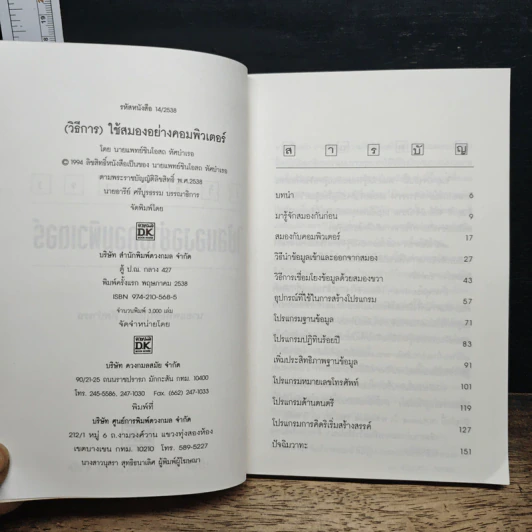 รหัสหนังสือ 14/2538
(วิธีการ) ใช้สมองอย่างคอมพิวเตอร์
โดย นายแพทย์ชินโอสถ หัศบำเรอ
© 1994 ลิขสิทธิ์หนังสือเป็นของ นายแพทย์ชินโอสถ หัศบำเรอ
ตามพระราชบัญญัติลิขสิทธิ์ พ.ศ.2538
นายอารีย์ ศรีบูรธรรม บรรณาธิการ
จัดพิมพ์โดย
DK
บริษัท สำนักพิมพ์ดวงกมล จำกัด
ตู้ ป.ณ. กลาง 427
พิมพ์ครั้งแรก พฤษภาคม 2538
ISBN 974-210-568-5
จำนวนพิมพ์ 3,000 เล่ม
จัดจำหน่ายโดย
DK
บริษัท ดวงกมลสมัย จำกัด
90/21-25 ถนนราชปรารภ มักกะสัน กทม. 10400
โทร. 245-5586, 247-1030 Fax. (662) 247-1033
พิมพ์ที่
บริษัท ศูนย์การพิมพ์ดวงกมล จำกัด
212/1 หมู่ 6 ถ.งามวงศ์วาน แขวงทุ่งสองห้อง
เขตบางเขน กทม. 10210 โทร. 589-5227
นางสาวนุสรา สุทธิธนาเลิศ ผู้พิมพ์ผู้โฆษณา
สารบัญ
บทนำ 6
มารู้จักสมองกันก่อน 9
สมองกับคอมพิวเตอร์ 17
วิธีนำข้อมูลเข้าและออกจากสมอง 27
วิธีการเชื่อมโยงข้อมูลด้วยสมองขวา 43
อุปกรณ์ที่ใช้ในการสร้างโปรแกรม 57
โปรแกรมฐานข้อมูล 71
โปรแกรมปฏิทินร้อยปี 83
เพิ่มประสิทธิภาพฐานข้อมูล 91
โปรแกรมหมายเลขโทรศัพท์ 101
โปรแกรมด้านดนตรี 119
โปรแกรมการคิดริเริ่มสร้างสรรค์ 127
ปัจฉิมวาทะ 151